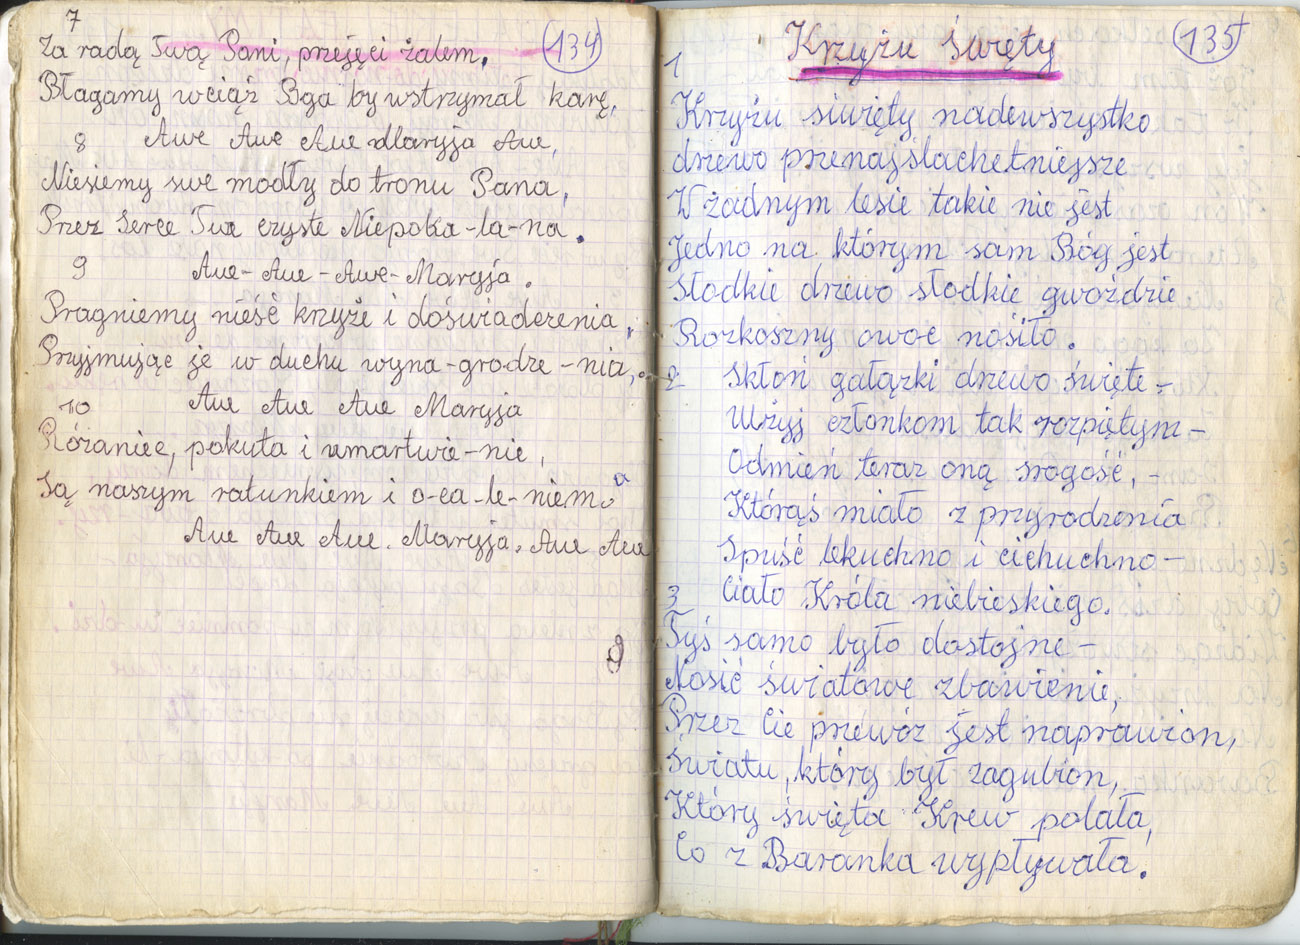 7
Za radą Twą Pani, przejęci żalem.
134
Błagamy wciąż Bga by wstrzymał karę,
8 Awe Awe Awe Maryja Awe,
Niesiemy swe modły do tronu Pana,
Przez Serce Twe czyste Niepoka-la-na.
9 Awe-Awe-Awe-Maryja.
Pragniemy nieść krzyże i doświadczenia,
Przyjmując je w duchu wyna-grodze-nia,
Awe Awe Awe Maryja
10
Różaniec, pokuta i umartwie-nie,
Są naszym ratunkiem i o-ca-le-niem.
Awe Awe Awe. Maryja. Awe Awe
135
Krzyżu Święty
1
Krzyżu siwięty nadewszystko
drzewo przenajślachetniejsze
W żadnym lesie takie nie jest
Jedno na którym sam Bóg jest
Słodkie drzewo słodkie gwoździe
Rozkoszny owoc nosiło.
2 Skłoń gałązki drzewo święte-
Ulżyj członkom tak rozpiętym-
Odmień teraz oną srogość,-
Którąś miało z przyrodzenia
Spuść lekuchno i cichuchno-
Ciało Króla niebieskiego.
3
Tyś samo było dostojne-
Nosić światowe zbawienie,
Przez Cie przewóz jest naprawion,
Światu, który był zagubion,
Który święta Krew polała,
Co z Baranka wypływała.